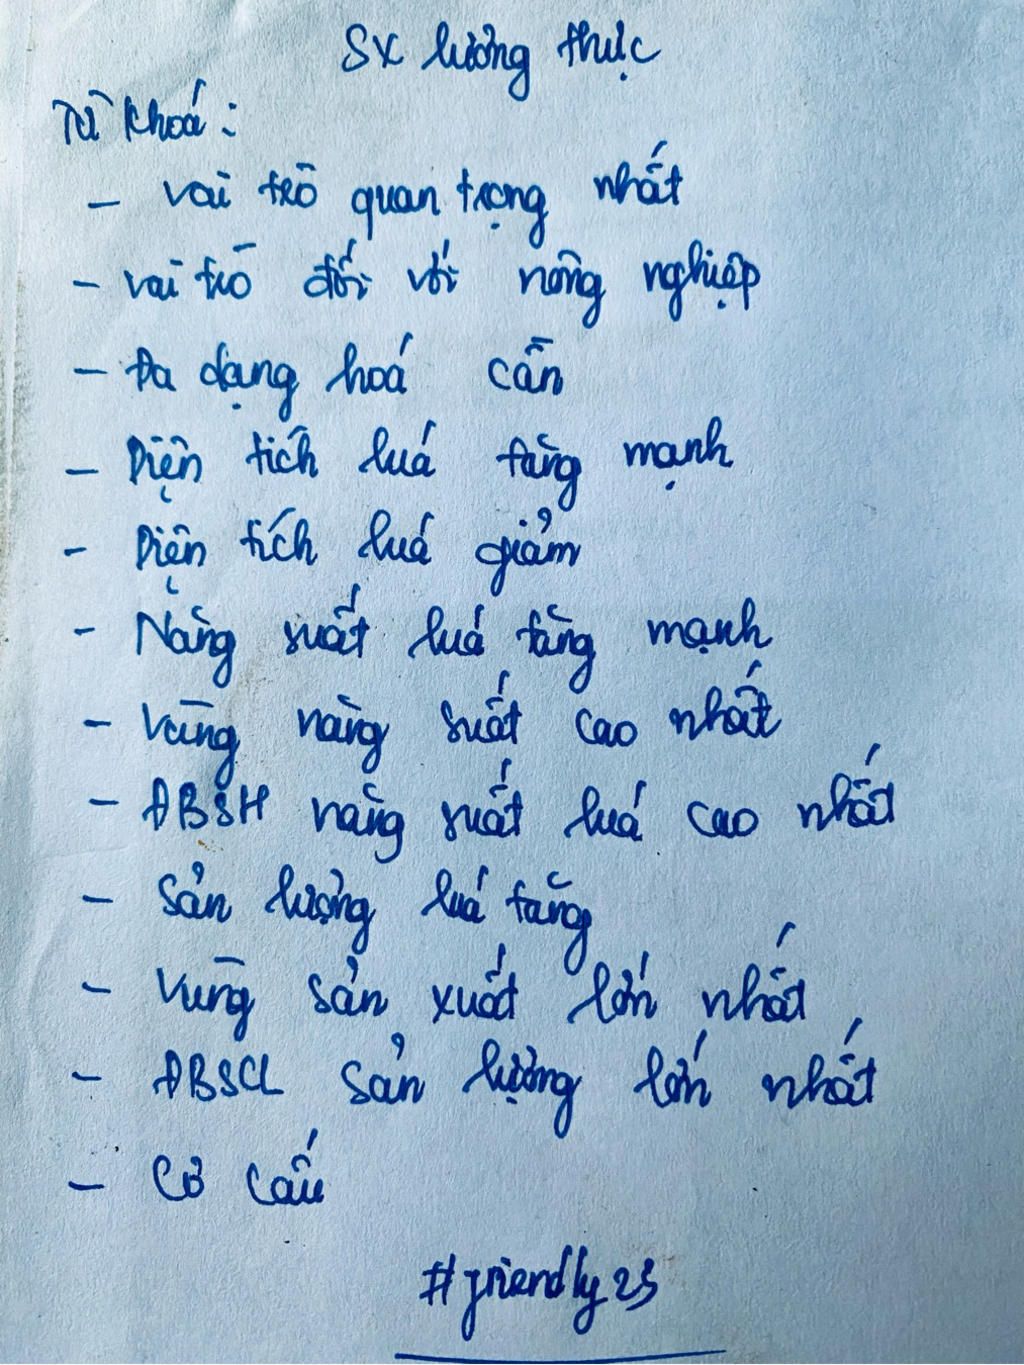 SX lương thực
Từ khoá :
- vai trò quan trọng nhất
- vai trò đối với nông nghiệp
- Đa dạng hoá cần
- Diện tích luá tăng mạnh
- Diện tích luá giảm
- Năng suất luá tăng mạnh
- Vùng năng suất cao nhất
- ĐBSH năng suất luá cao nhất
- Sản lượng luá tăng
- Vùng sản xuất lớn nhất
- ĐBSCL sản lượng lớn nhất
- Cơ cấu
#friendly23